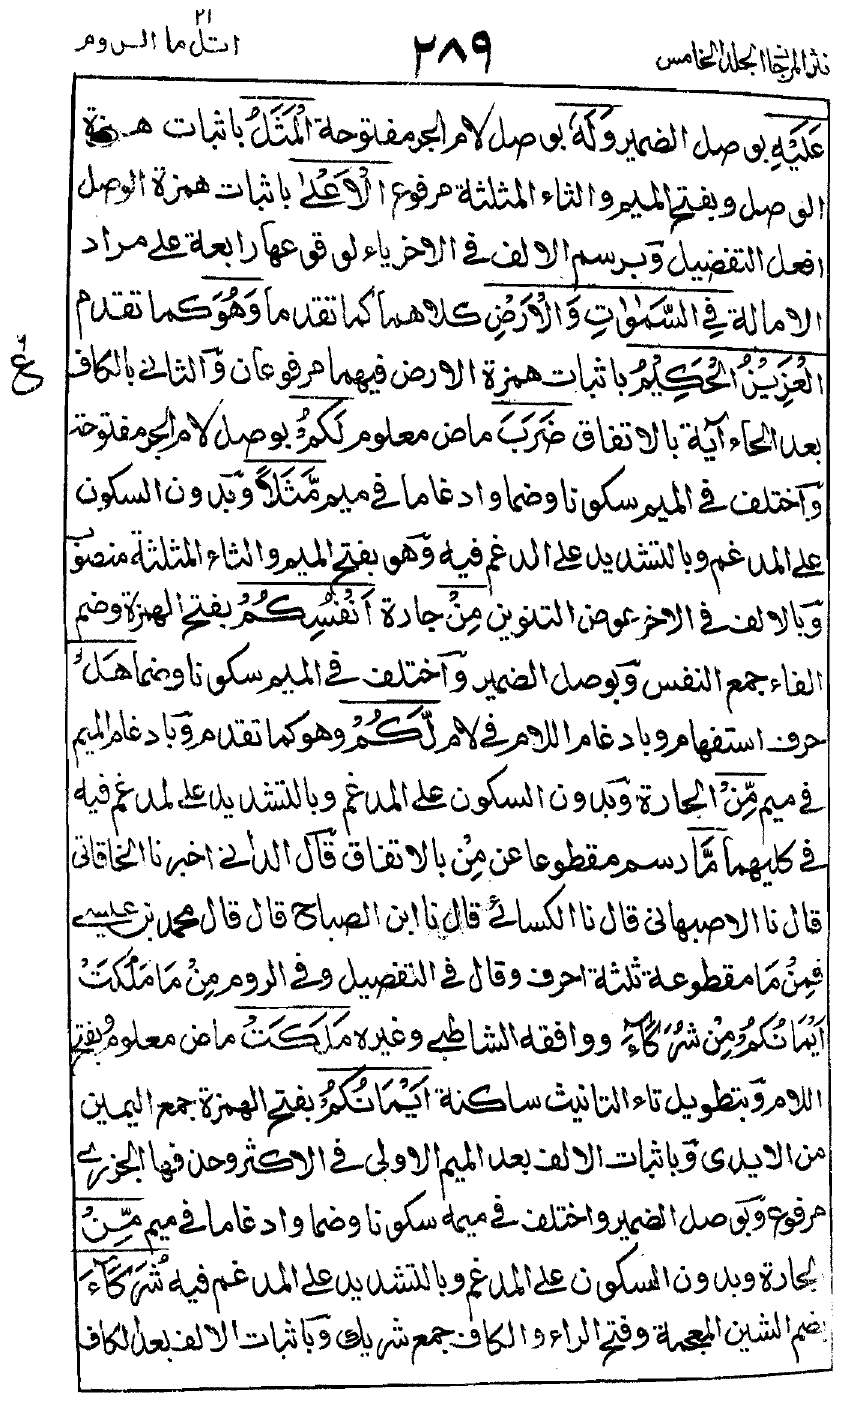 نثر المرجان الجلد الخامس
٢٨٩
٢١
اتل ما الروم
عَلَيْهِ بوصل الضمير وَلَهُ بوصل لام الجر مفتوحة الْمَثَلُ باثبات همزة
الوصل وبفتح الميم والثاء المثلثة مرفوع الْاَعْلٰى باثبات همزة الوصل
افعل التفضيل وبرسم الالف في الاخر ياء لوقوعها رابعة على مراد
الامالة فِي السَّمٰوٰتِ وَالْاَرْضِ كلاهما كما تقدما وَهُوَ كما تقدم
الْعَزِيْزُ الْحَكِيْمُ باثبات همزة الارض فيهما مرفوعان والثاني بالكاف
ع
بعد الحاء آية بالاتفاق ضَرَبَ ماض معلوم لَكُمْ بوصل لام الجر مفتوحة
واختلف في الميم سكونا وضما وادغاما في ميم مَّثَلًا وبدون السكون
على المدغم وبالتشديد على المدغم فيه وهو بفتح الميم والثاء المثلثة منصوب
وبالالف في الاخر عوض التنوين مِنْ جادة اَنْفُسِكُمْ بفتح الهمزة وضم
الفاء جمع النفس وبوصل الضمير واختلف في الميم سكونا وضما هَلْ
حرف استفهام وبادغام اللام في لام لَّكُمْ وهو كما تقدم وبادغام الميم
في ميم مِّنْ الجارة وبدون السكون على المدغم وبالتشديد على لمدغم فيه
في كليهما مَّا رسم مقطوعا عن مِنْ بالاتفاق قال الداني اخبرنا الخاقاني
قال نا الاصبهاني قال نا الكسائي قال نا ابن الصباح قال قال محمد بن عيسى
فمِنْ مَا مقطوعة ثلثة احرف وقال في التفصيل وفي الروم مِنْ مَا مَلَكَتْ
اَيْمَانُكُمْ مِنْ شُرَكَآءَ ووافقه الشاطبي وغيره مَلَكَتْ ماض معلوم وبفتح
اللام وبتطويل تاء التانيث ساكنة اَيْمَانُكُمْ بفتح الهمزة جمع اليمين
من الايدى وباثبات الالف بعد الميم الاولى في الاكثر وحذفها الجزري
مرفوع وبوصل الضمير واختلف في ميمه سكونا وضما وادغاما في ميم مِّنْ
الجارة وبدون السكون على المدغم وبالتشديد على المدغم فيه شُرَكَآءَ
بضم الشين المعجمة وفتح الراء والكاف جمع شريك وباثبات الالف بعد الكاف